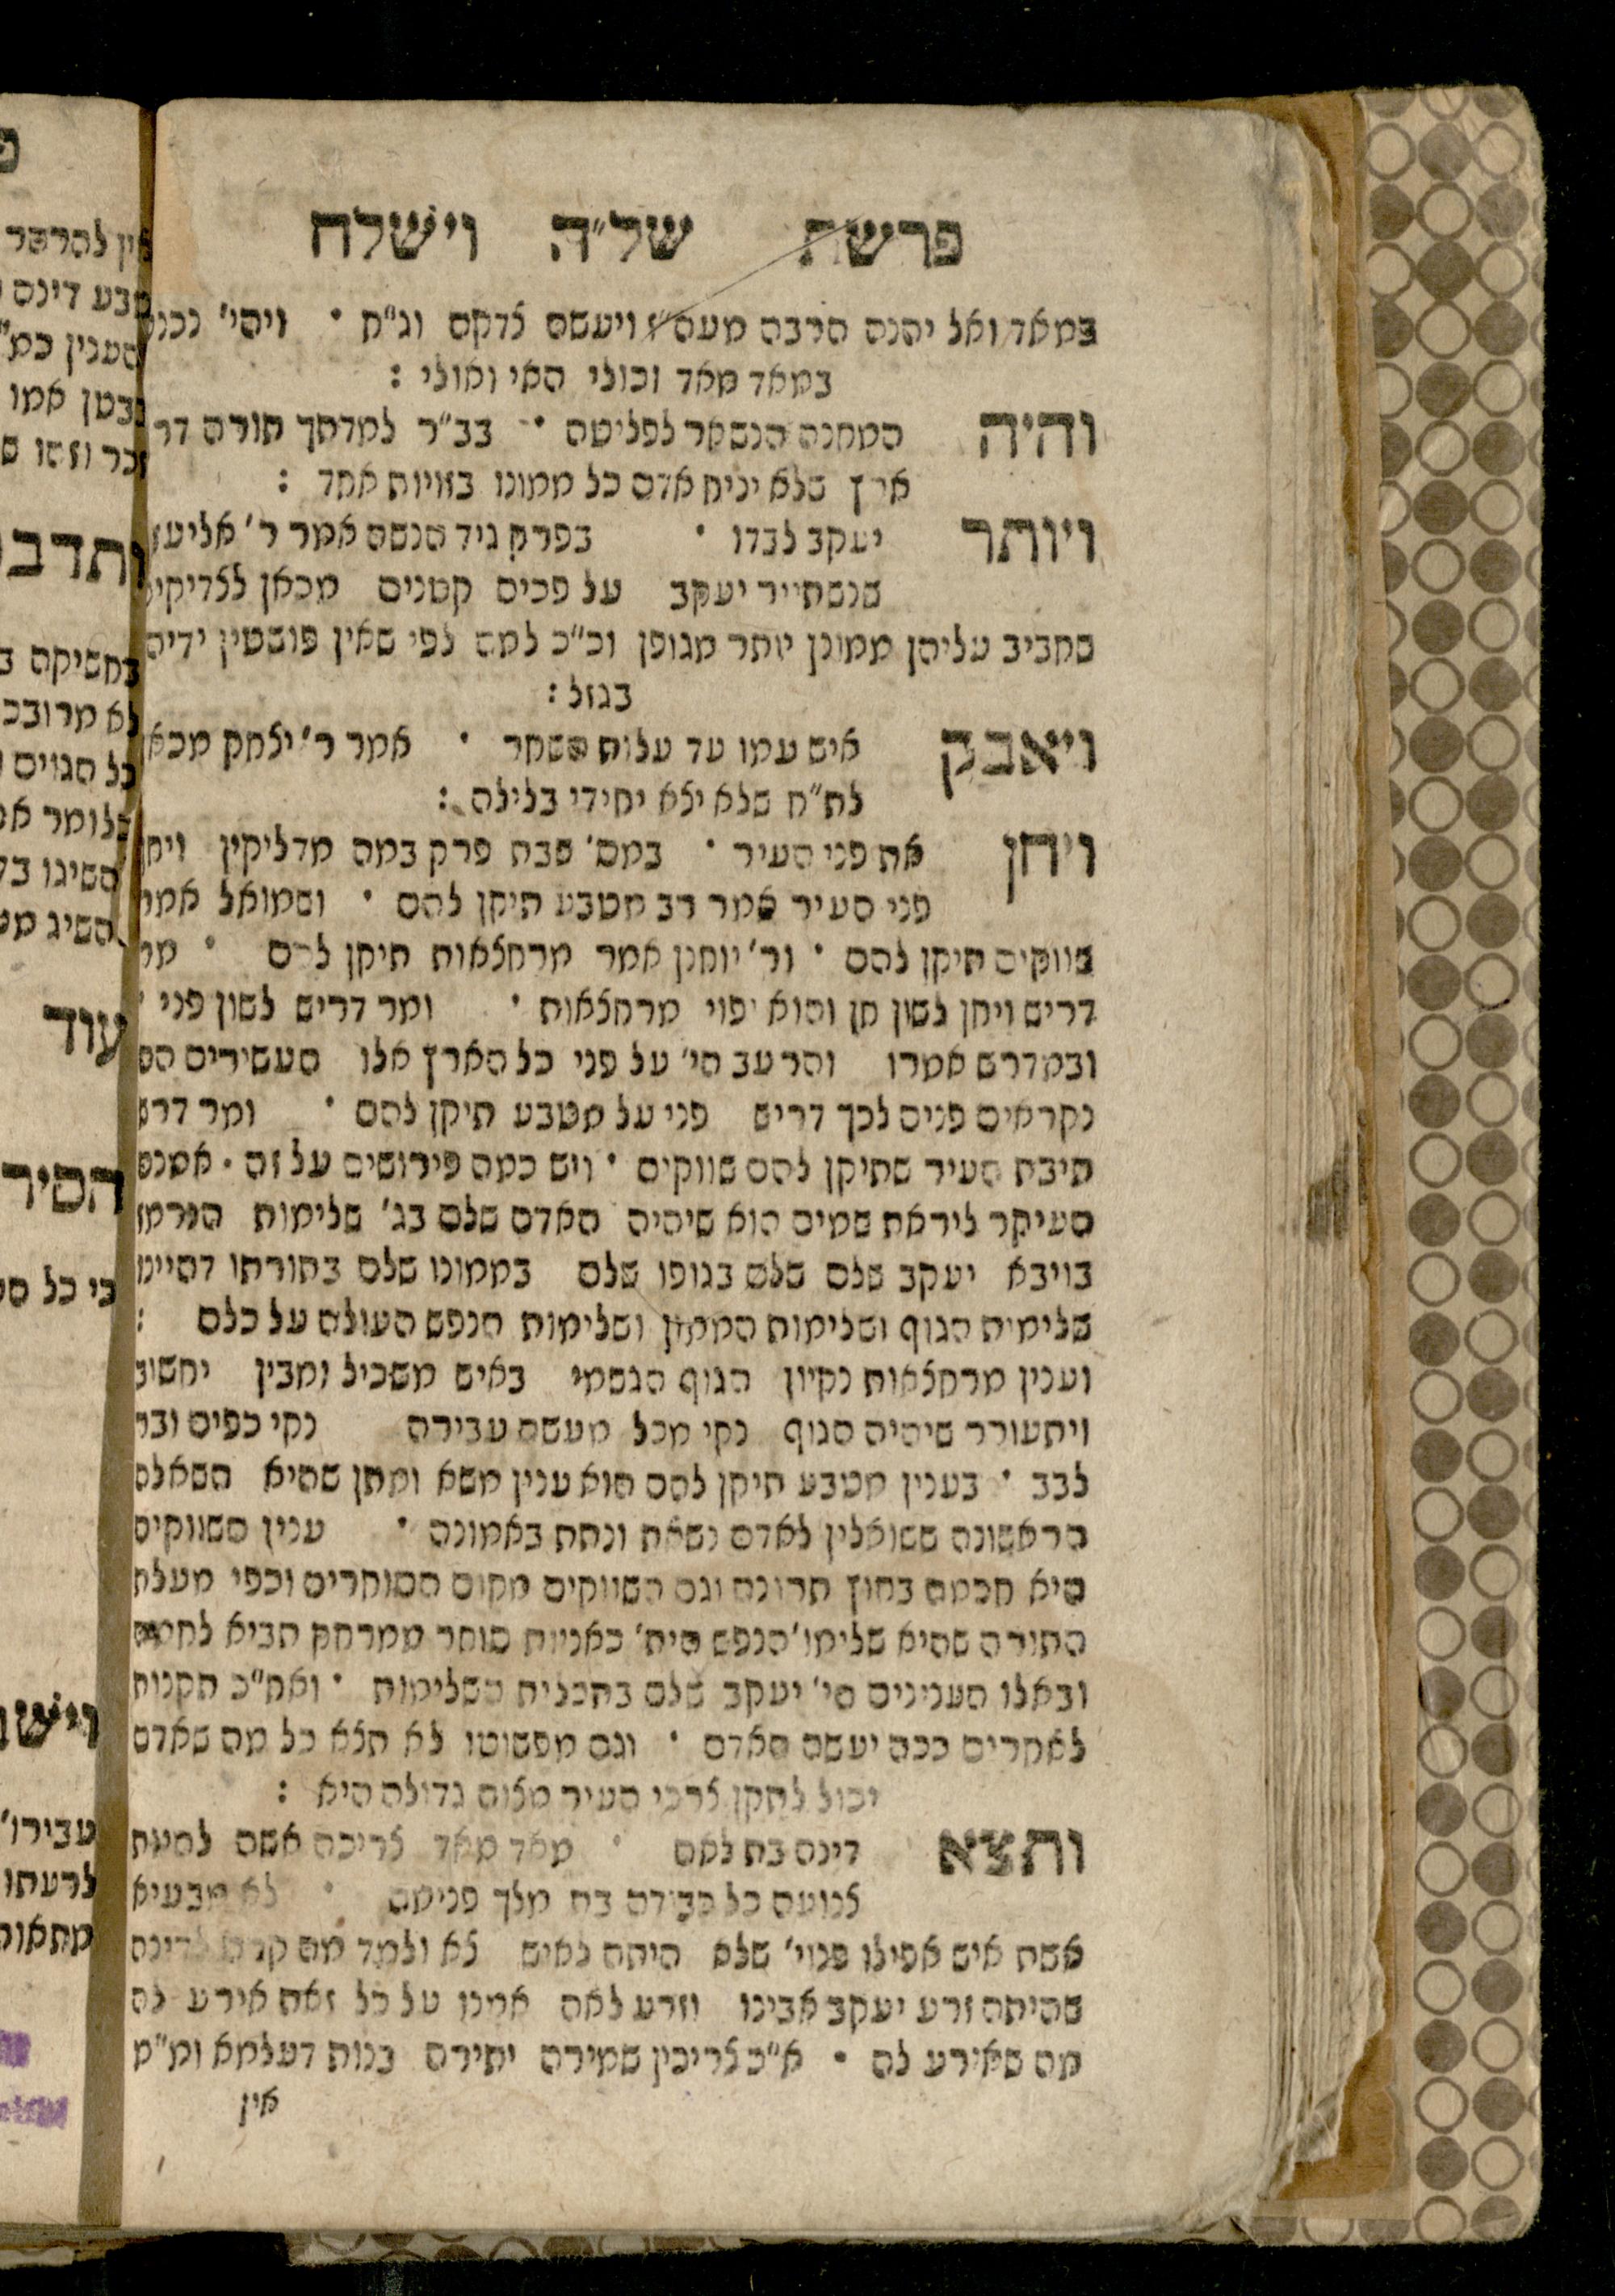 פרשת של״ה וישלח
במאד ואל יהנה הרבה מעה״ז ויעשה צדקה וג״ח • ויהי׳ נכנע
במאד מאד וכולי האי ואולי :
והיה המחנה הנשאר לפליטה • בב״ר למדתך תורה דרך
ארץ שלא יניח אדם כל ממונו בזויות אחד :
ויותר יעקב לבדו • בפרק גיד הנשה אמר ר׳ אליעזר
שנשתייר יעקב על פכים קטנים מכאן לצדיקים
שחביב עליהן ממונן יותר מגופן וכ״כ למה לפי שאין פושטין ידיהן
בגזל :
ויאבק איש עמו עד עלות השחר • אמר ר׳ יצחק מכאן
לת״ח שלא יצא יחידי בלילה :
ויחן את פני העיר • במס׳ שבת פרק במה מדליקין ויחן
פני העיר אמר רב מטבע תיקן להם • ושמואל אמר
שווקים תיקן להם • ור׳ יוחנן אמר מרחצאות תיקן להם • מר
דריש ויחן לשון חן והוא יפוי מרחצאות • ומר דריש לשון פני
ובמדרש אמרו והרעב הי׳ על פני כל הארץ אלו העשירים
נקראים פנים לכך דריש פני על מטבע תיקן להם • ומר דרש
תיבת העיר שתיקן להם שווקים • ויש כמה פירושים על זה • אמנם
העיקר ליראת שמים הוא שיהיה האדם שלם בג׳ שלימות הנרמז
בויבא יעקב שלם שלם בגופו שלם בממונו שלם בתורתו דהיינו
שלימות הגוף ושלימות הממון ושלימות הנפש העולה על כלם :
וענין מרחצאות נקיון הגוף הגשמי באיש משכיל ומבין יחשוב
ויתעורר שיהיה הגוף נקי מכל מעשה עבירה נקי כפים ובר
לבב • בענין מטבע תיקן להם הוא ענין משא ומתן שהיא השאלה
הראשונה ששואלין לאדם נשאת ונתת באמונה • ענין השווקים
היא חכמה בחוץ תרונה וגם השווקים מקום הסוחרים וכפי מעלת
התורה שהיא שלימו׳ הנפש הית׳ כאניות סוחר ממרחק תביא לחמה
ובאלו הענינים הי׳ יעקב שלם בתכלית השלימות • ואח״כ תקנות
לאחרים ככה יעשה האדם • וגם מפשוטו לא תצא כל מה שאדם
יכול לתקן צרכי העיר מצוה גדולה היא :
ותצא דינה בת לאה • מאד מאד צריכה אשה להיות
צנועה כל כבודה בת מלך פנימה • לא מבעיא
אשת איש אפילו פנוי׳ שלא היתה לאיש צא ולמד מה קרה לדינה
שהיתה זרע יעקב אבינו וזרע לאה אמנו על כל זאת אירע לה
מה שאירע לה • א״כ צריכין שמירה יתירה בנות דעלמא ומ״מ
אין